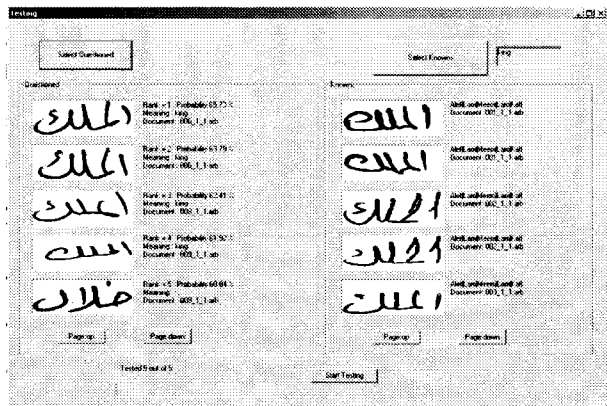 Testing
Select Questioned
Select Knowns
king
Questioned
Knowns
الملك
Rank = 1 Probability 65.73 %
Meaning: king
Document: 006_1_1.arb
الملك
Rank = 2 Probability 63.79 %
Meaning: king
Document: 006_1_1.arb
الملك
Rank = 3 Probability 62.41 %
Meaning: king
Document: 008_1_1.arb
الملك
Rank = 4 Probability 61.92 %
Meaning: king
Document: 009_1_1.arb
خلال
Rank = 5 Probability 60.84 %
Meaning:
Document: 008_1_1.arb
Page up
Page down
الملك
Document: 001_1_1.arb
الملك
Document: 001_1_1.arb
الملك
Document: 002_1_1.arb
الملك
Document: 002_1_1.arb
الملك
Document: 003_1_1.arb
Page up
Page down
Tested 5 out of 5
Start Testing